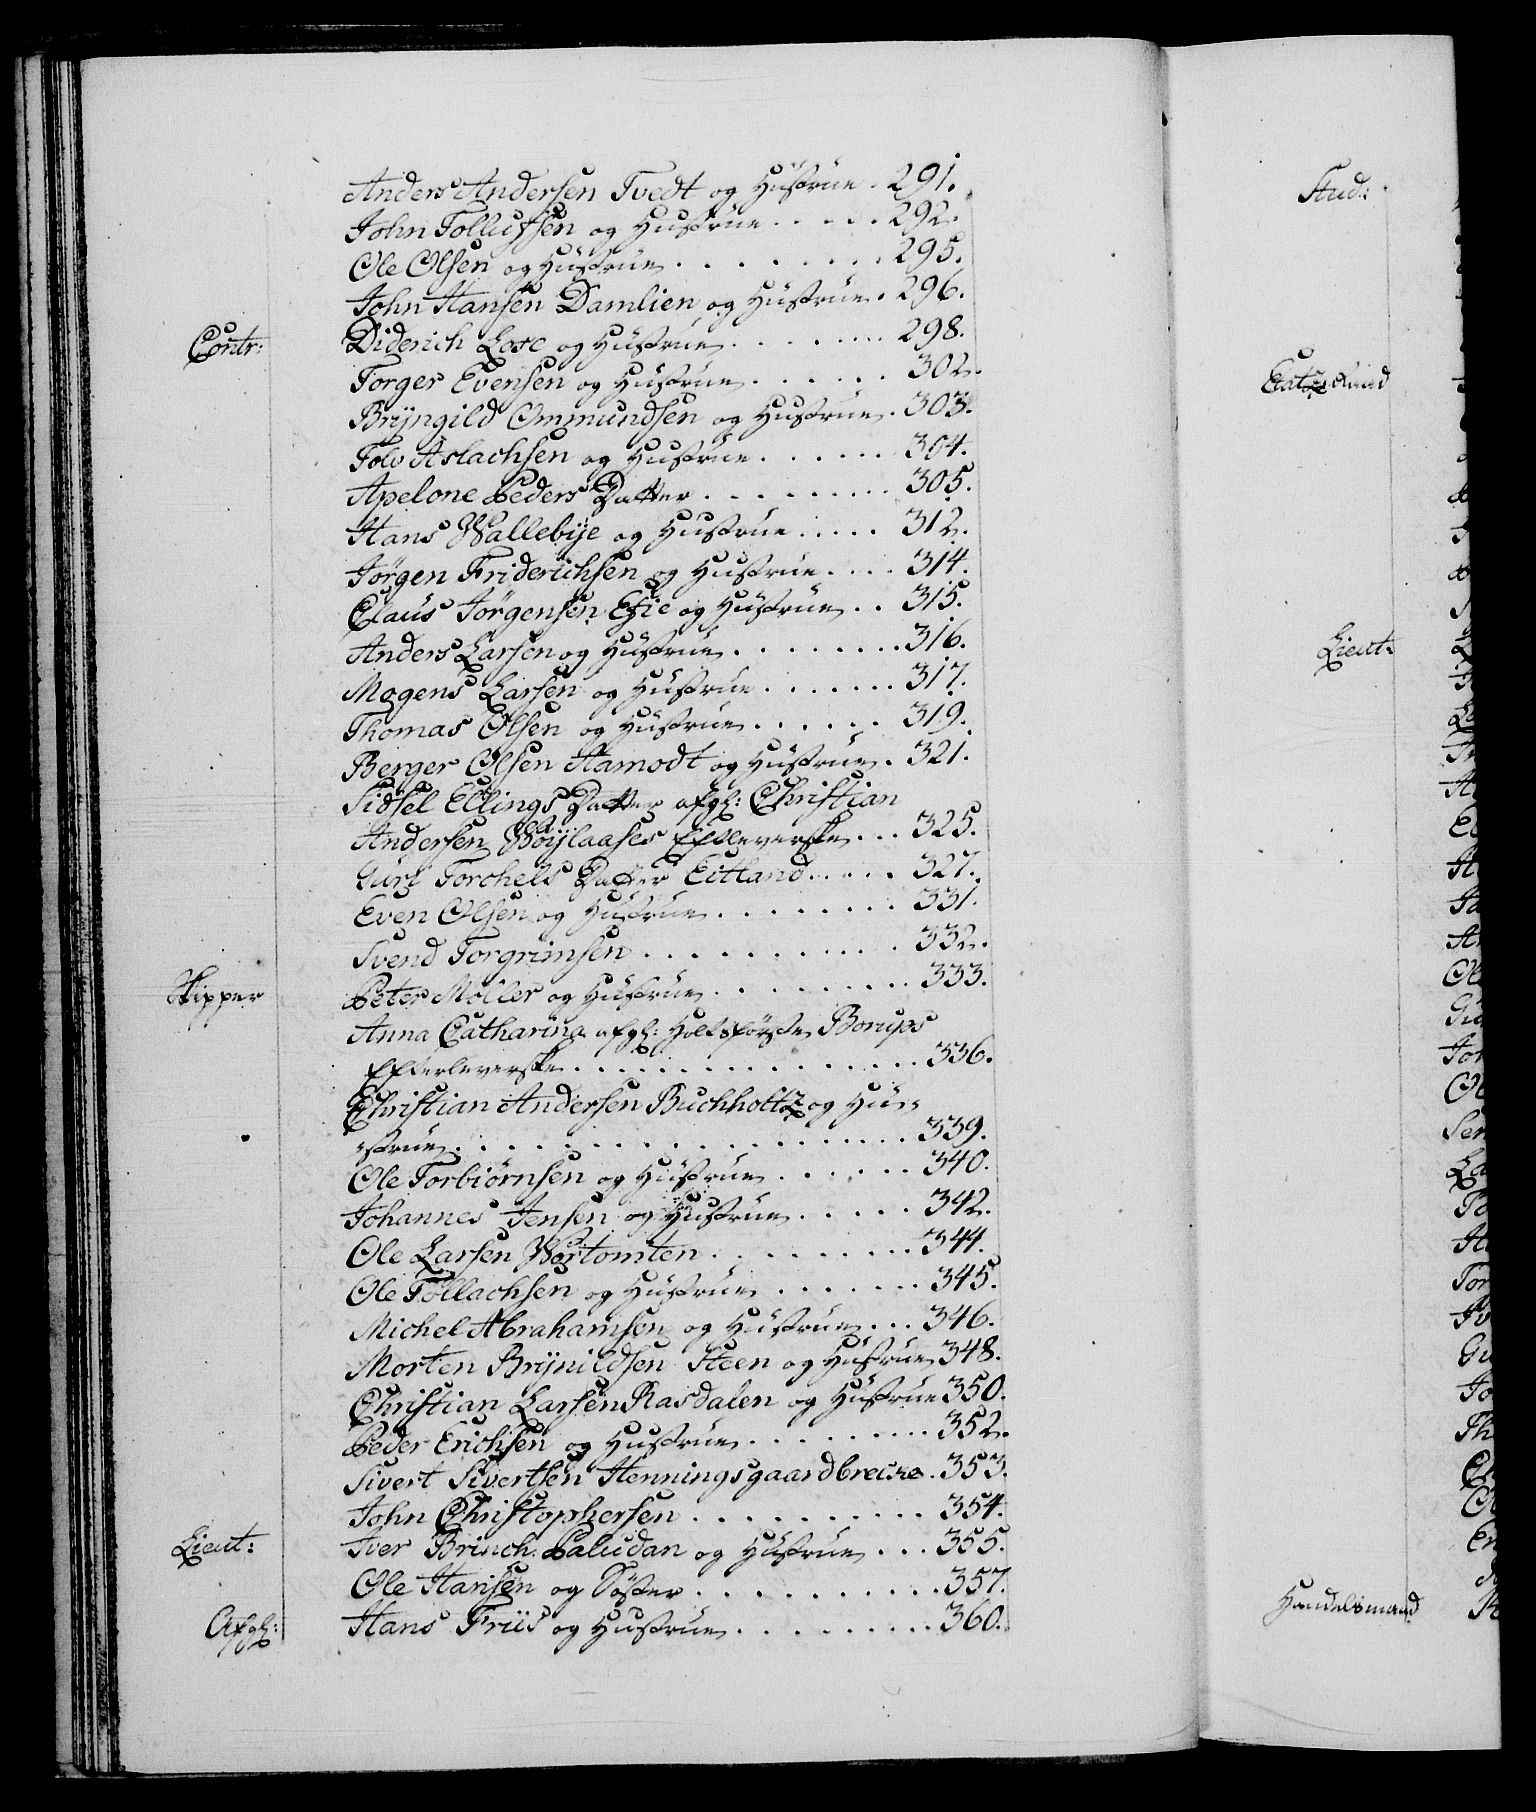 Anders Andersen Tvedt og Hustrue . 291.
John Tollufsen og Hustrue . . . . . 292.
Ole Olsen og Hustrue . . . . . . . . 295.
John Hansen Damlien og Hustrue . 296.
Contr: Diderich Lose og Hustrue . . . . . . . 298.
Torger Evensen og Hustrue . . . . . . 302.
Bryngild Ommundsen og Hustrue . 303.
Tolv Aslachsen og Hustrue . . . . . . 304.
Apelone Peders Datter . . . . . . . . . 305.
Hans Wallebye og Hustrue . . . . . 312.
Jørgen Friderichsen og Hustrue . . . . 314.
Claus Jørgensen og Hustrue . . 315.
Anders Larsen og Hustrue . . . . . . . . 316.
Mogens Larsen og Hustrue . . . . . . . 317.
Thomas Olsen og Hustrue . . . . . . 319.
Berger Olsen Aamodt og Hustrue . 321.
Sidsel Ellings Datter afgl: Christian
Andersen Bøylaases Efterleverske . . . 325.
Guri Torchels Datter Eitland . . . . . 327.
Even Olsen og Hustrue . . . . . . . . 331.
Svend Torgrimsen . . . . . . . . . . 332.
Skipper Peter Møller og Hustrue . . . . . . . . . 333.
Anna Catharina afgl: Holtsførster Borups
Efterleverske . . . . . . . . . . . . . . . . 336.
Christian Andersen Buchholtz og Hu=
=strue . . . . . . . . . . . . . . . . . . 339.
Ole Torbiørnsen og Hustrue . . . . . . 340.
Johannes Jensen og Hustrue . . . . . 342.
Ole Larsen Wortomten . . . . . . . . . 344.
Ole Tollachsen og Hustrue . . . . . . . 345.
Michel Abrahamsen og Hustrue . . . 346.
Morten Brynildsen Steen og Hustrue 348.
Christian Larsen Rasdalen og Hustrue 350.
Peder Erichsen og Hustrue . . . . . . . . 352.
Sivert Sivertsen Henningsgaardbrecke . 353.
John Christophersen . . . . . . . . . . 354.
Lieut: Iver Brinch Paludan og Hustrue . . . 355.
Ole Hansen og Søster . . . . . . . . . . 357.
Afgl: Hans Friis og Hustrue . . . . . . . . . 360.
Stud:
Lieut:
Handelsmand